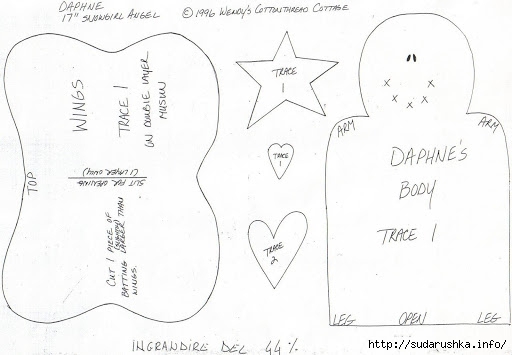 DAPHNE
17" SNOWGIRL ANGEL
© 1996 WENDY'S COTTONTHREAD COTTAGE
TOP
WINGS
TRACE 1
ON DOUBLE LAYER
MUSLIN
SLIT FOR OPENING
(1 LAYER ONLY)
CUT 1 PIECE OF
BATTING LARGER THAN
WINGS.
TRACE
1
TRACE
1
TRACE
2
ARM
ARM
DAPHNE'S
BODY
TRACE 1
LEG
OPEN
LEG
INGRANDIRE DEL 44%
http://sudarushka.info/